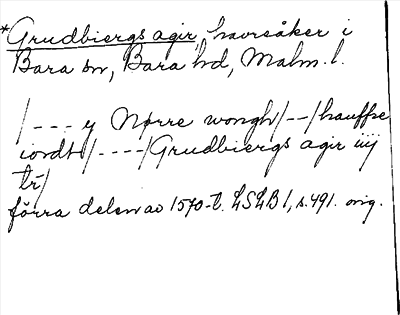 *Grudbiergs agir, havreåker i
Bara sn, Bara hd, Malm. l.
/--- y Nørre wongh/--/hauffre
iordt/----/Grudbiergs agir iiij
tr̃/
förra delen av 1570-t. LSLB I, s. 491. orig.